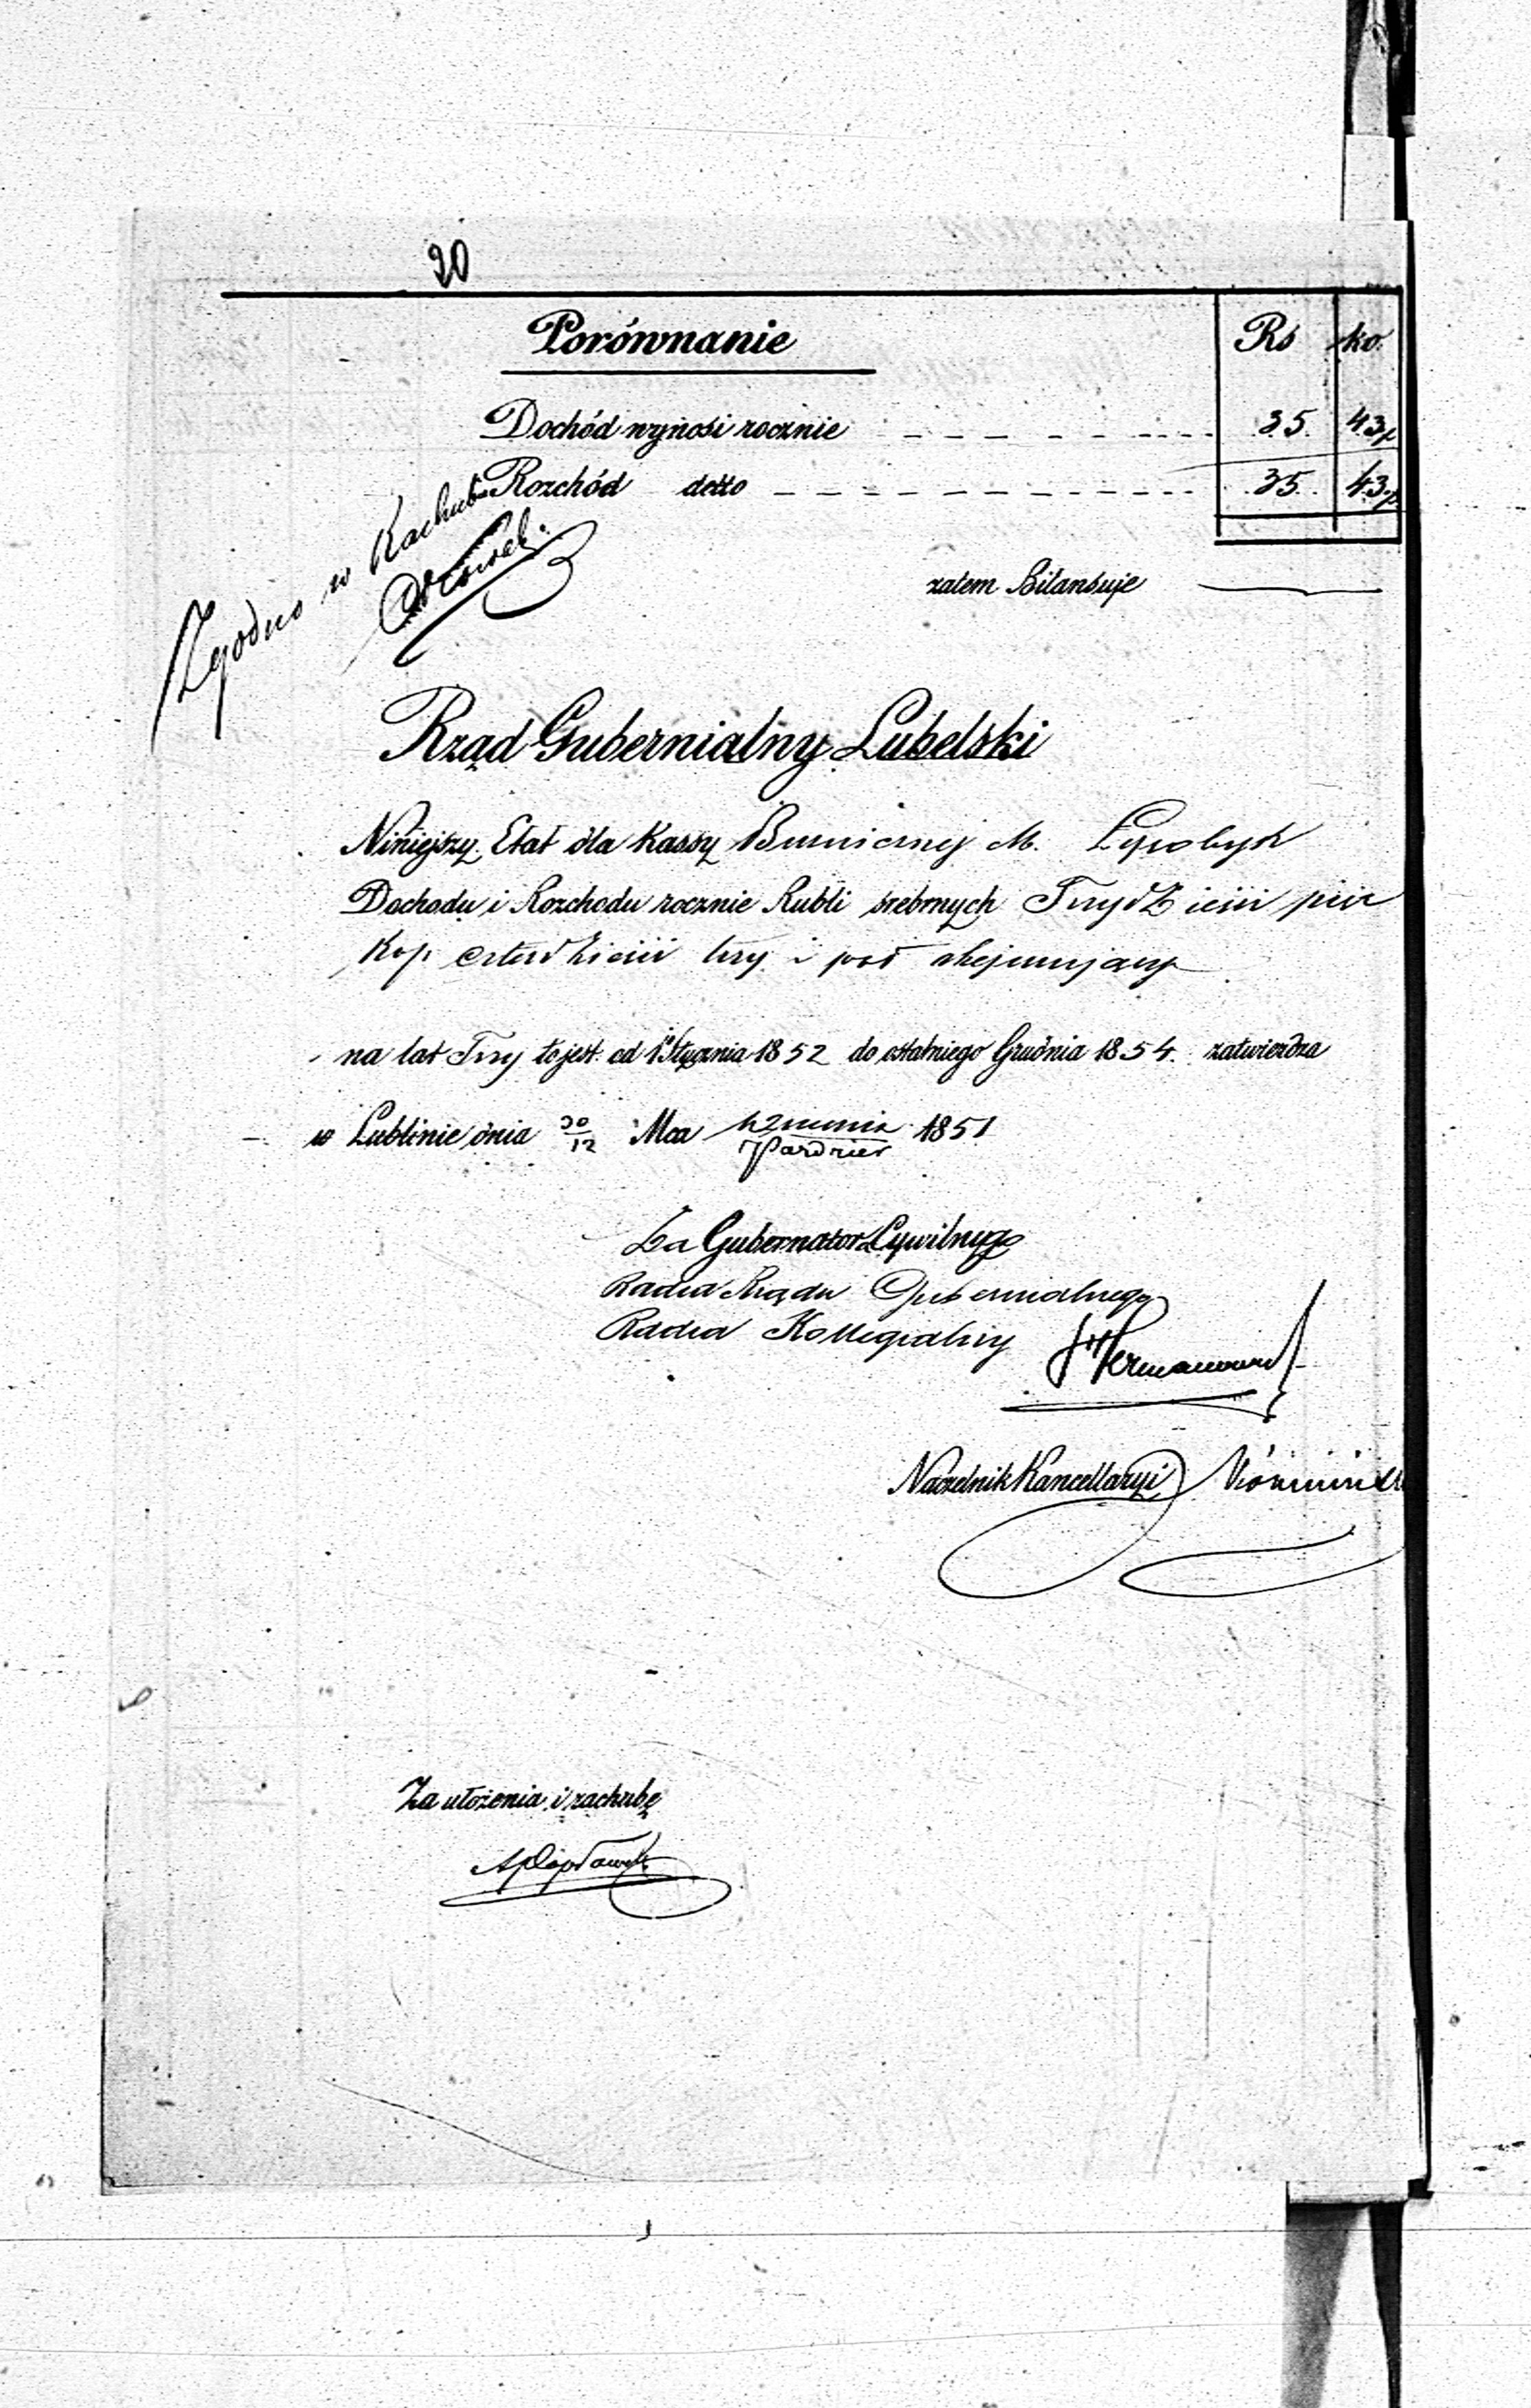 20
Porównanie Rs ko.
Dochód wynosi rocznie 35. 43½
Rozchód detto 35. 43½
Zgodno w Rachub
zatem Bilansuje
Rząd Gubernialny Lubelski
Niniejszy Etat dla Kassy Bużniczney M. Łysobyk
Dochodu i Rozchodu rocznie Rubli srebrnych Trzydzieści pięć
Kop czterdzieści trzy i pół obejmujący
na lat Trzy to jest od 1 Stycznia 1852 do ostatniego Grudnia 1854. zatwierdza
w Lublinie dnia 30/12 Mca Września/Paździer 1851
Za Gubernatora Cywilnego
Radca Rządu Gubernialnego
Radca Kollegialny
Naczelnik Kancellaryi
Za ułożenia i rachubę